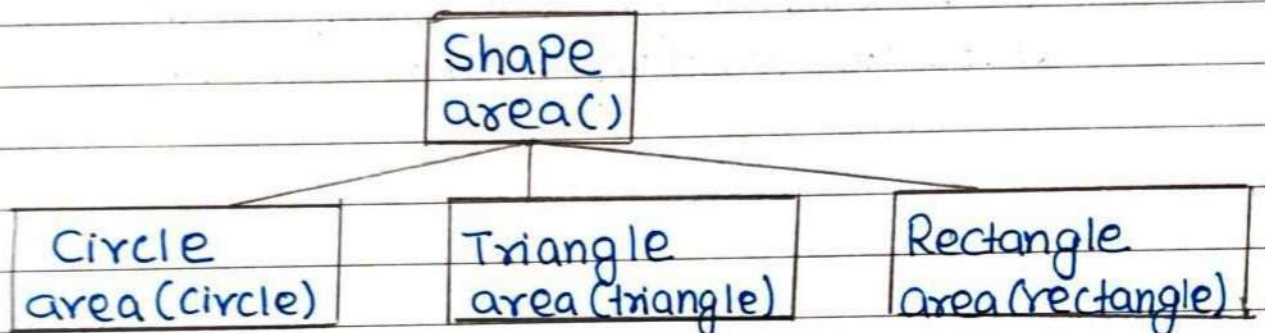 Shape
area()
Circle
area(circle)
Triangle
area(triangle)
Rectangle
area(rectangle)